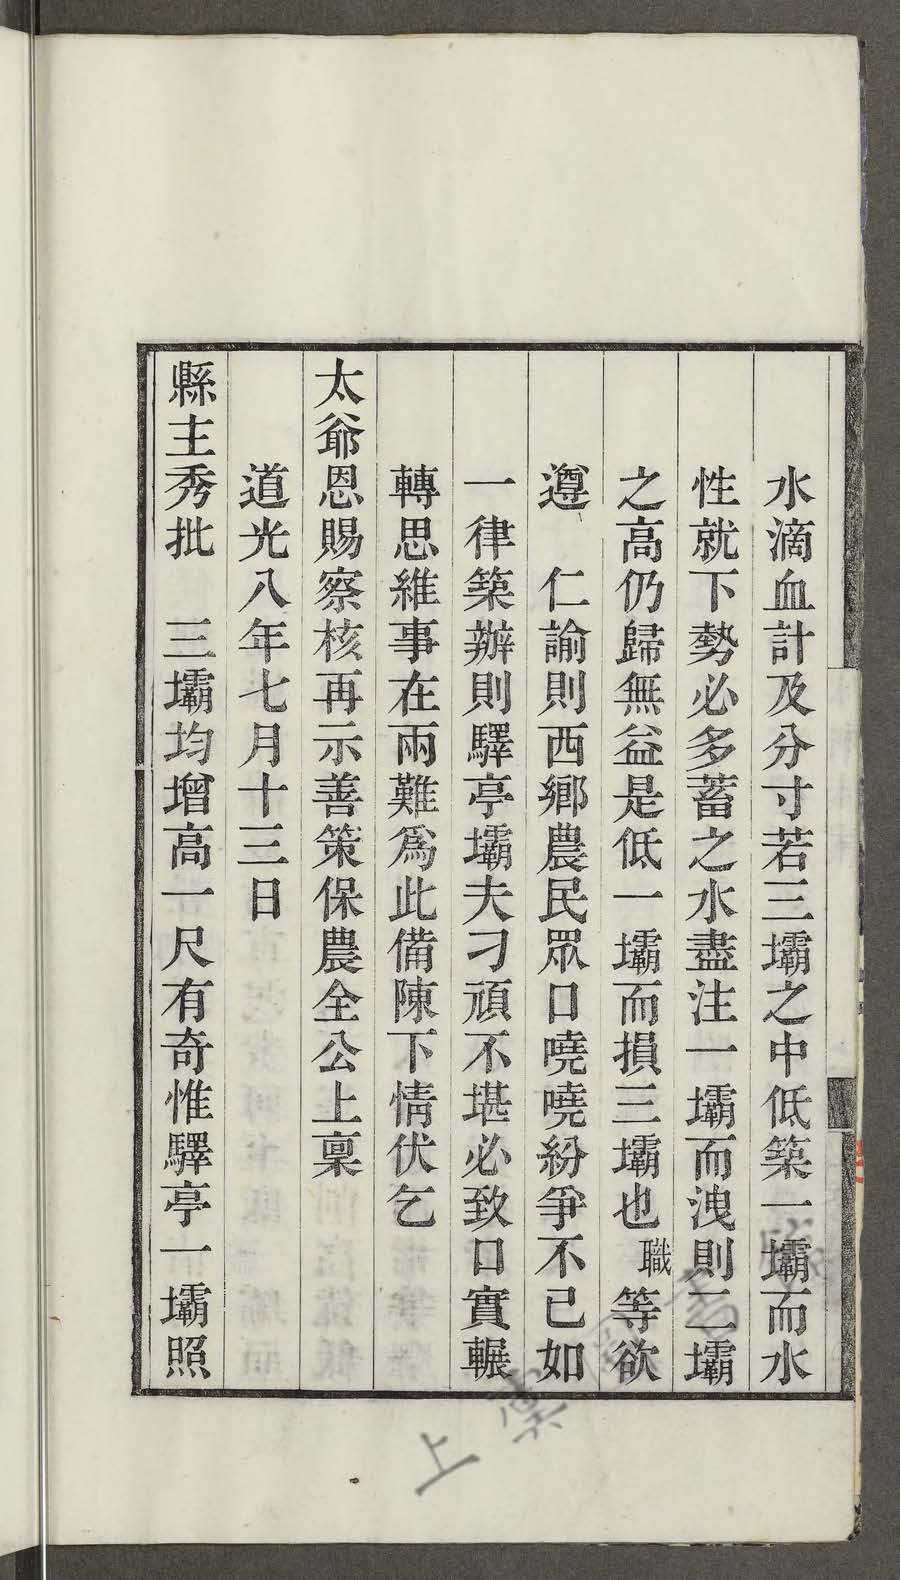 水滴血計及分寸若三壩之中低築一壩而水
性就下勢必多蓄之水盡注一壩而洩則二壩
之高仍歸無益是低一壩而損三壩也職等欲
遵　仁諭則西鄉農民眾口嘵嘵紛爭不已如
一律築辦則驛亭壩夫刁頑不堪必致口實輾
轉思維事在兩難為此備陳下情伏乞
太爺恩賜察核再示善策保農全公上稟
道光八年七月十三日
縣主秀批　三壩均增高一尺有奇惟驛亭一壩照